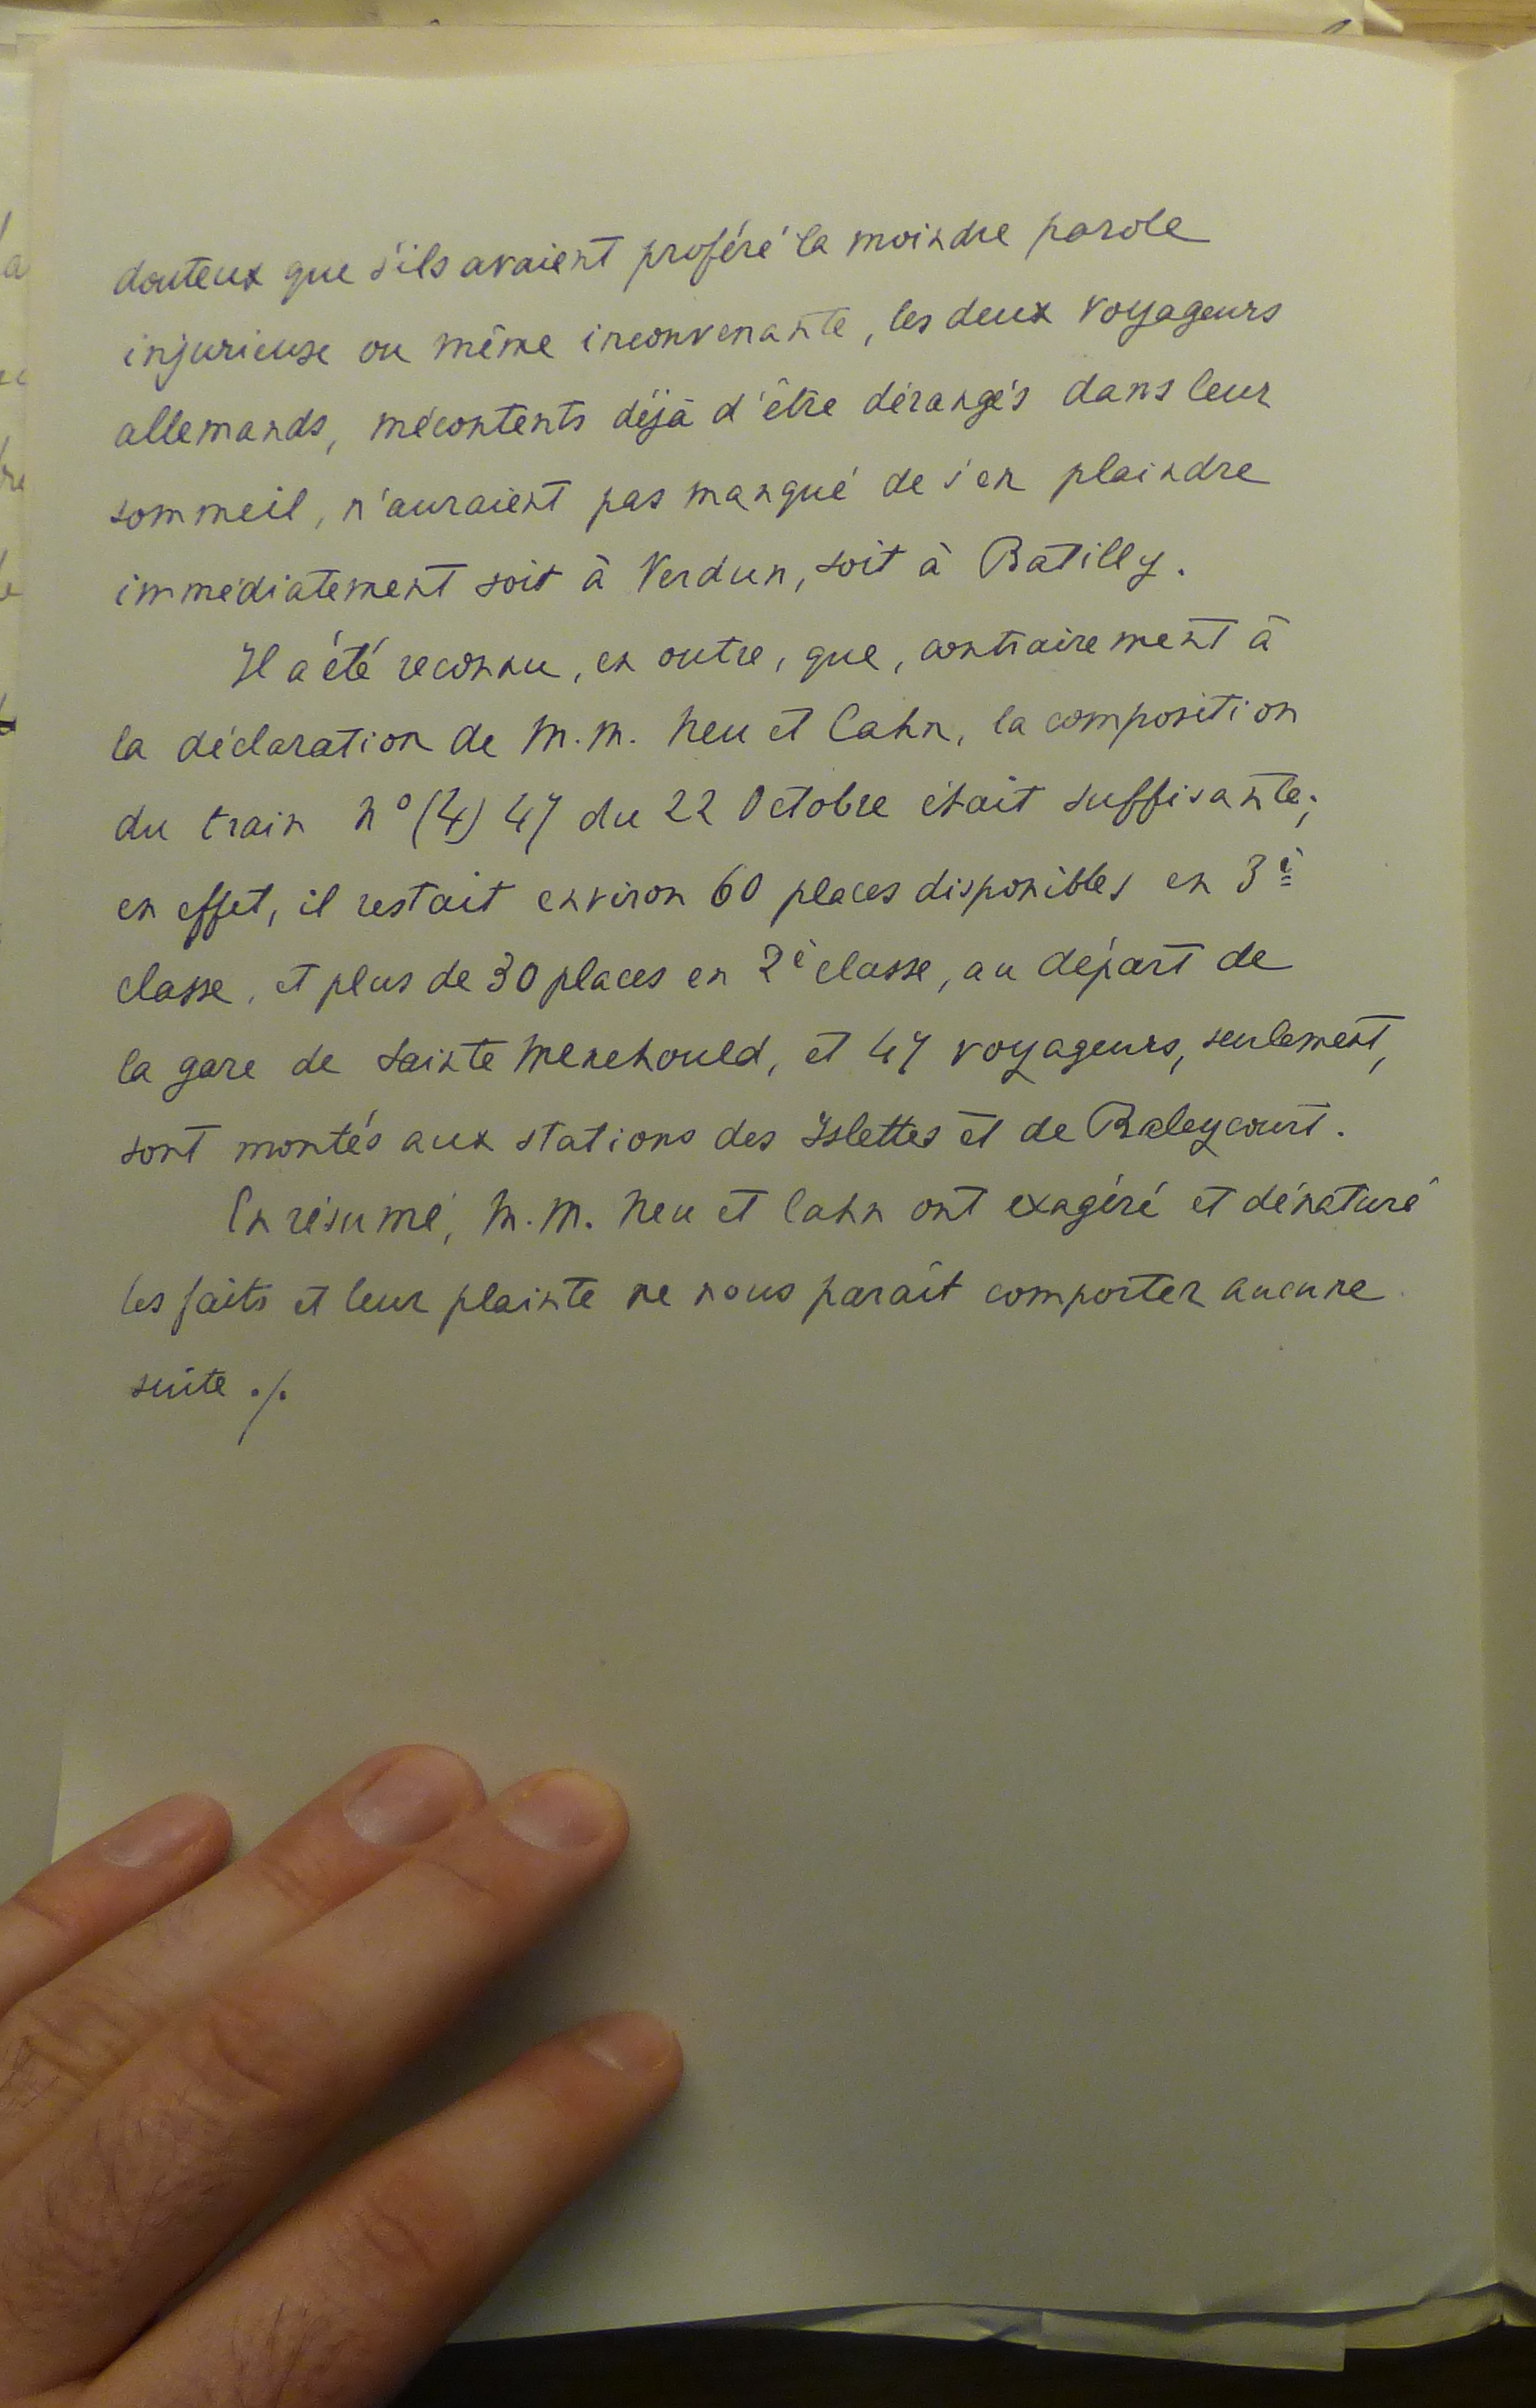 douteux que s'ils avaient proféré la moindre parole
injurieuse ou même inconvenante, les deux voyageurs
allemands, mécontents déjà d'être dérangés dans leur
sommeil, n'auraient pas manqué de s'en plaindre
immédiatement soit à Verdun, soit à Batilly.
Il a été reconnu, en outre, que, contrairement à
la déclaration de M.M. Neu et Cahn, la composition
du train N° (4) 47 du 22 Octobre était suffisante;
en effet, il restait environ 60 places disponibles en 3è
classe, et plus de 30 places en 2è classe, au départ de
la gare de Sainte Menehould, et 47 voyageurs, seulement,
sont montés aux stations des Islettes et de Baleycourt.
En résumé, M.M. Neu et Cahn ont exagéré et dénaturé
les faits et leur plainte ne nous paraît comporter aucune
suite ./.